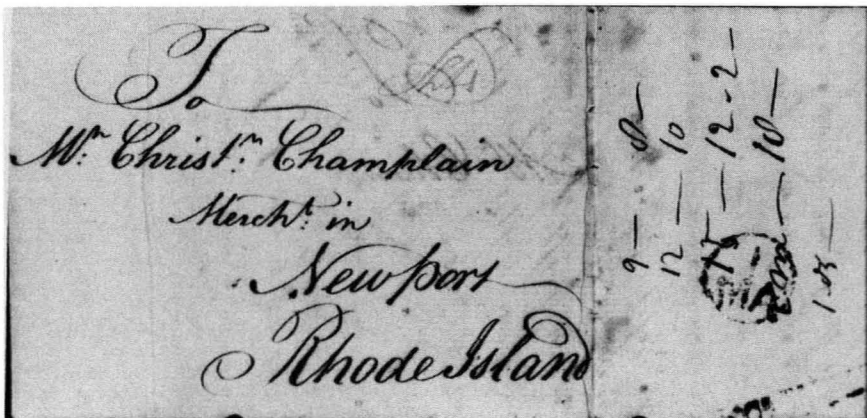 To
Mr. Christr. Champlain
Mercht: in
Newport
Rhode Island
9 — 8 —
12 — 10
12 - 2 —
10 —